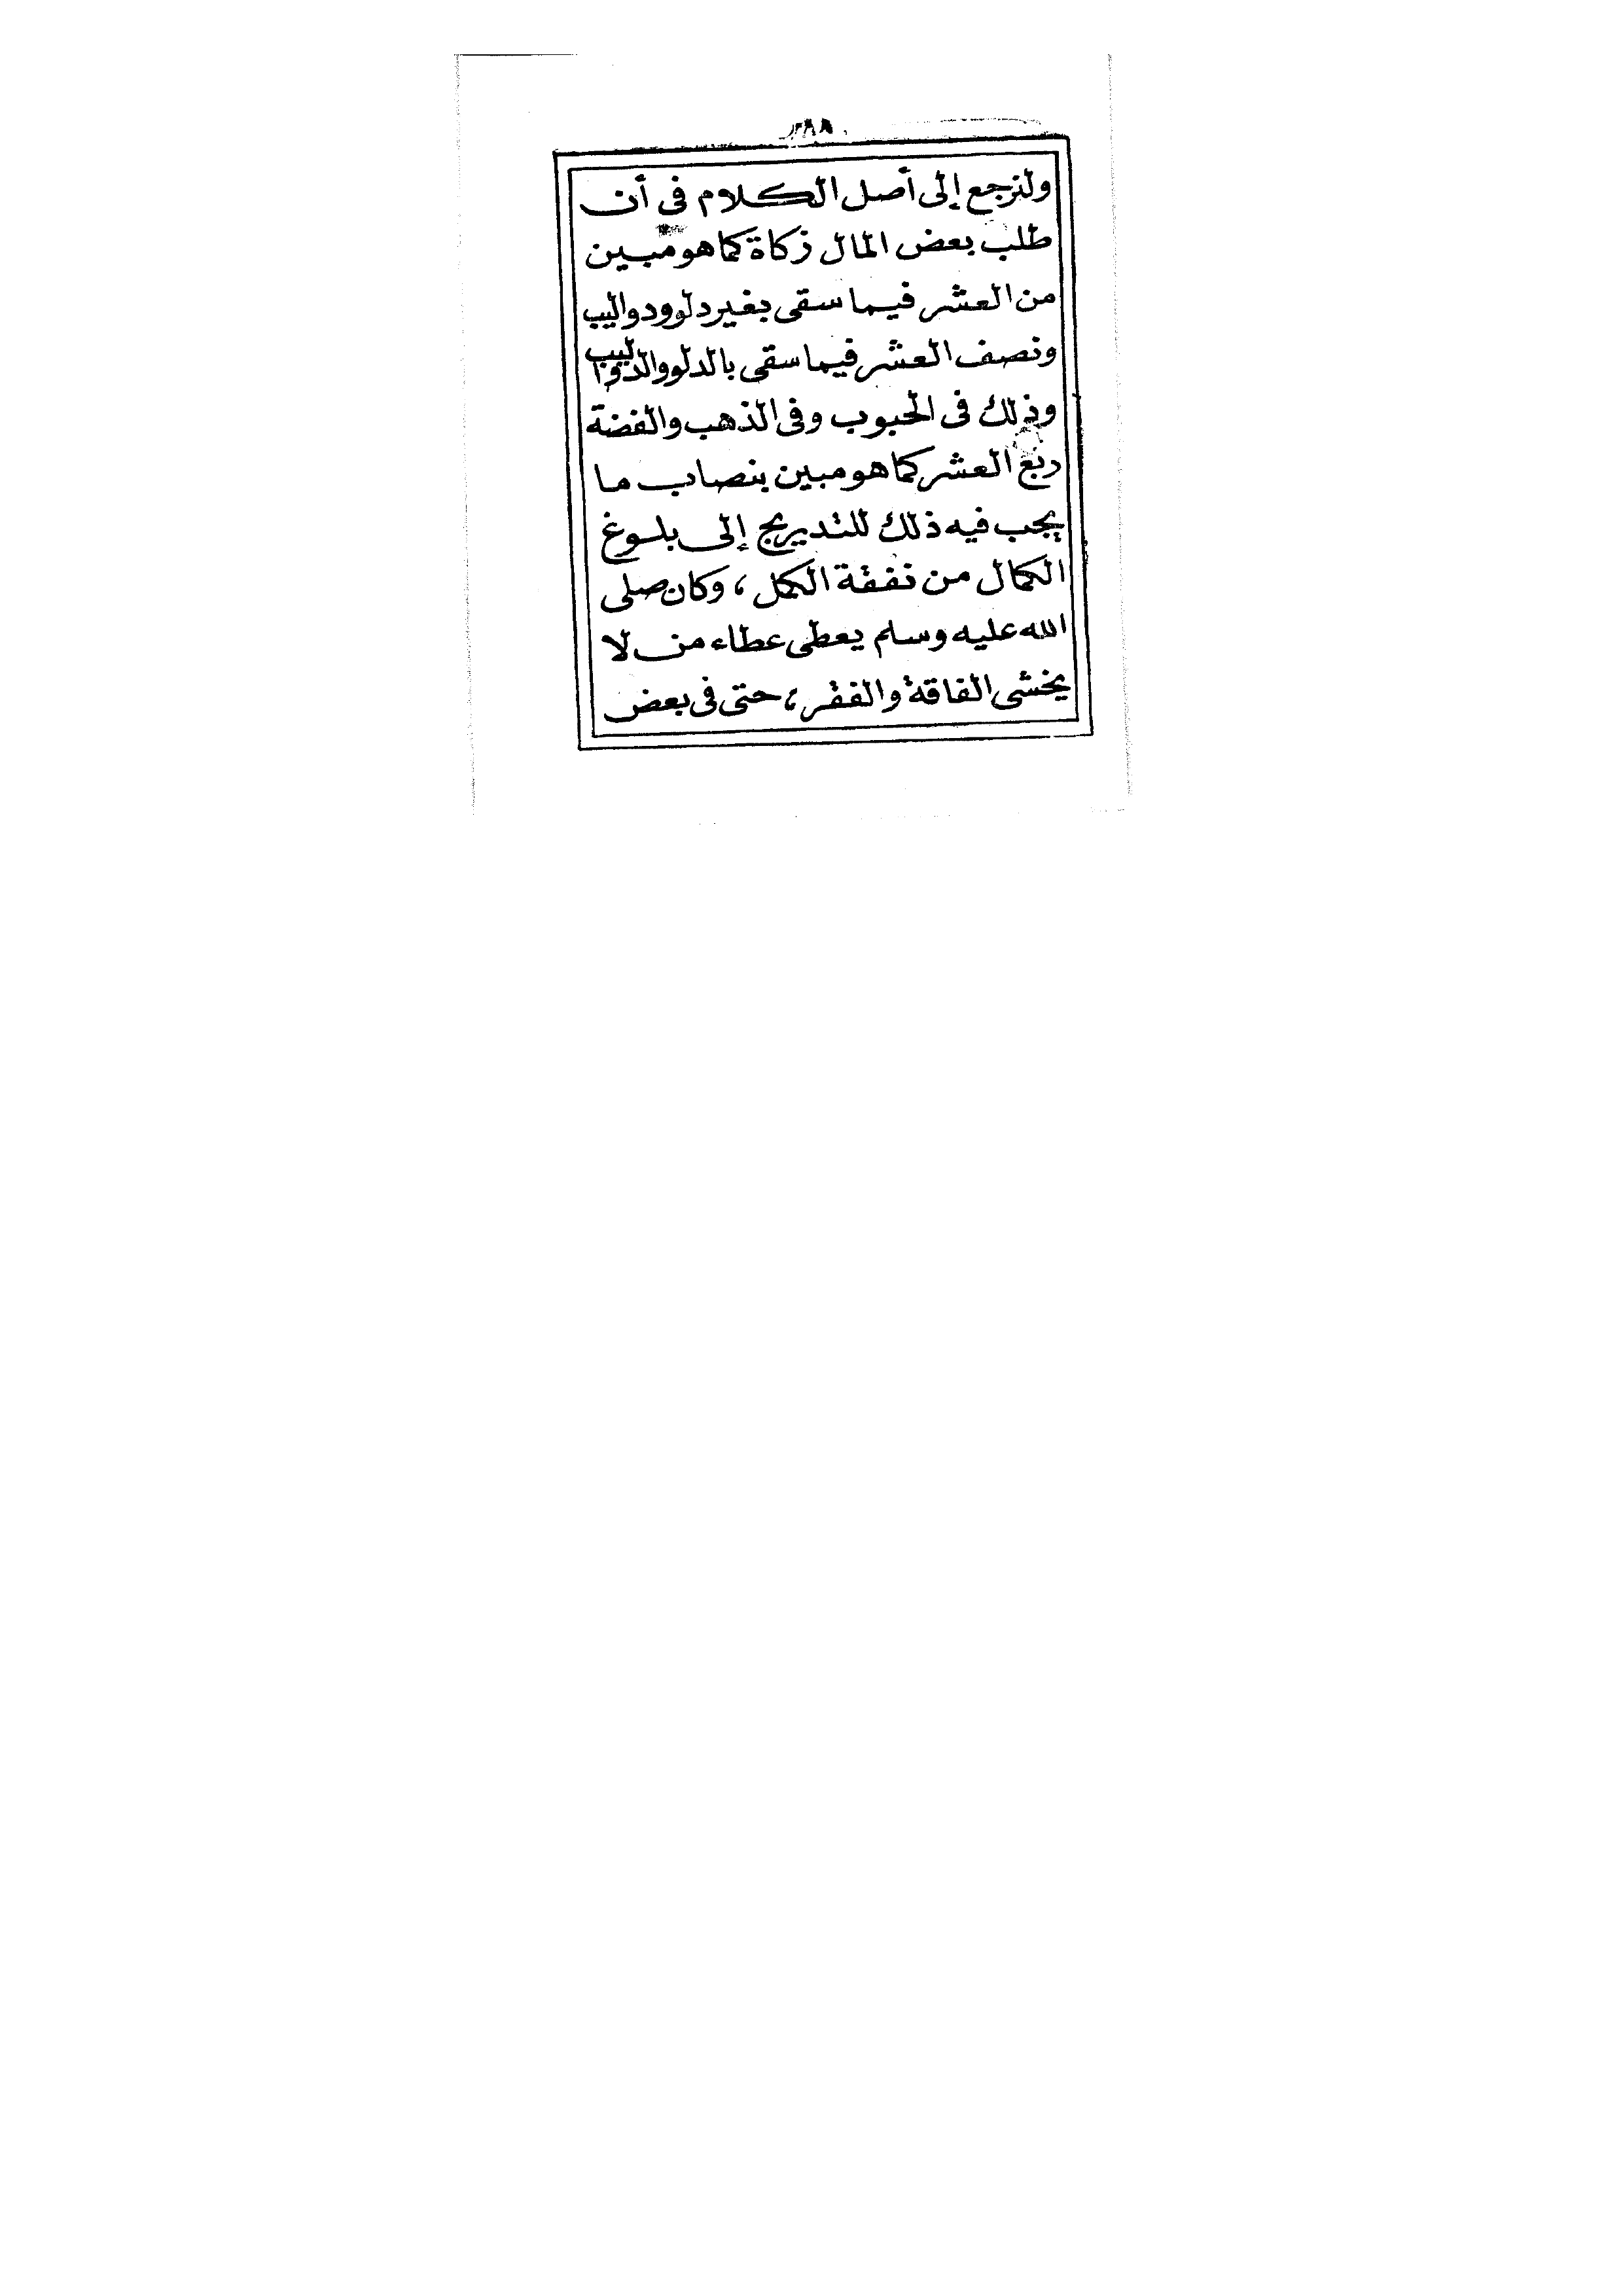 ولنرجع إلى أصل الكلام فى أن
طلب بعض المال زكاة كما هو مبين
من العشر فيما سقى بغير دلو ودواليب
ونصف العشر فيما سقى بالدلو والدواليب
وذلك فى الحبوب وفى الذهب والفضة
ربع العشر كما هو مبين بنصاب ما
يجب فيه ذلك للتدريج إلى بلوغ
الكمال من نفقة الكل ، وكان صلى
الله عليه وسلم يعطى عطاء من لا
يخشى الفاقة والفقر ، حتى فى بعض